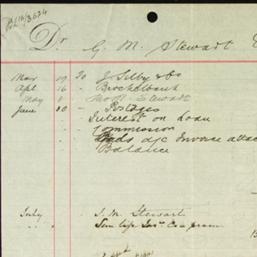 Dr G. M. Stewart
Mar 19 To J Selby & Co
Apl 16 - Brockelbank
May 8 - Stewart
June 30 - Postages
Interest on Loan
Commission
Goods a/c Invoice attac
Balance
July J. M. Stewart
Sun life Insce Company